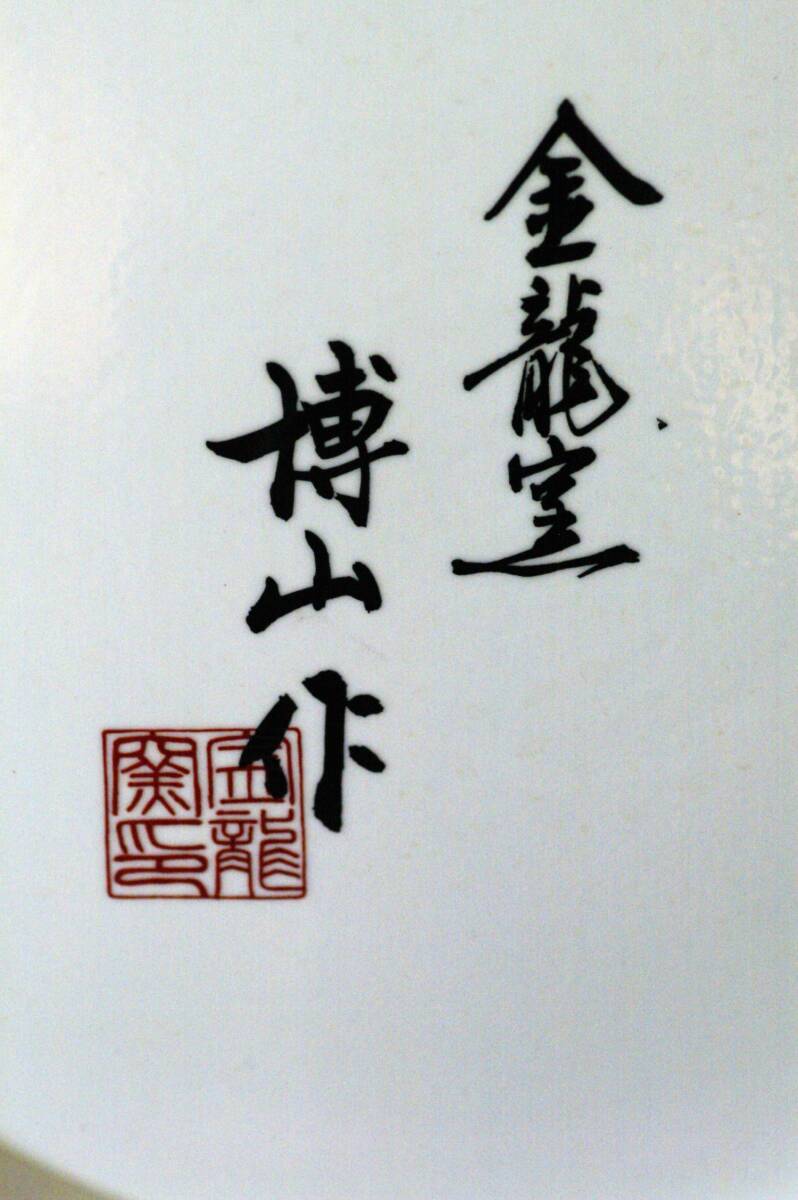 金龍窯
博山作
金龍
窯印